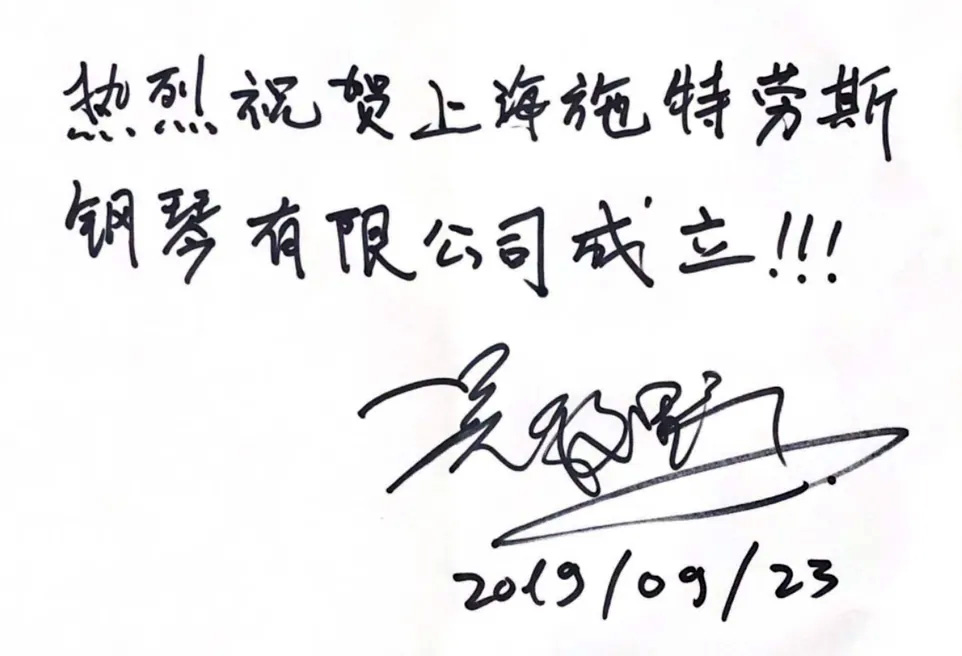 热烈祝贺上海施特劳斯
钢琴有限公司成立!!!
吴牧野
2019/09/23